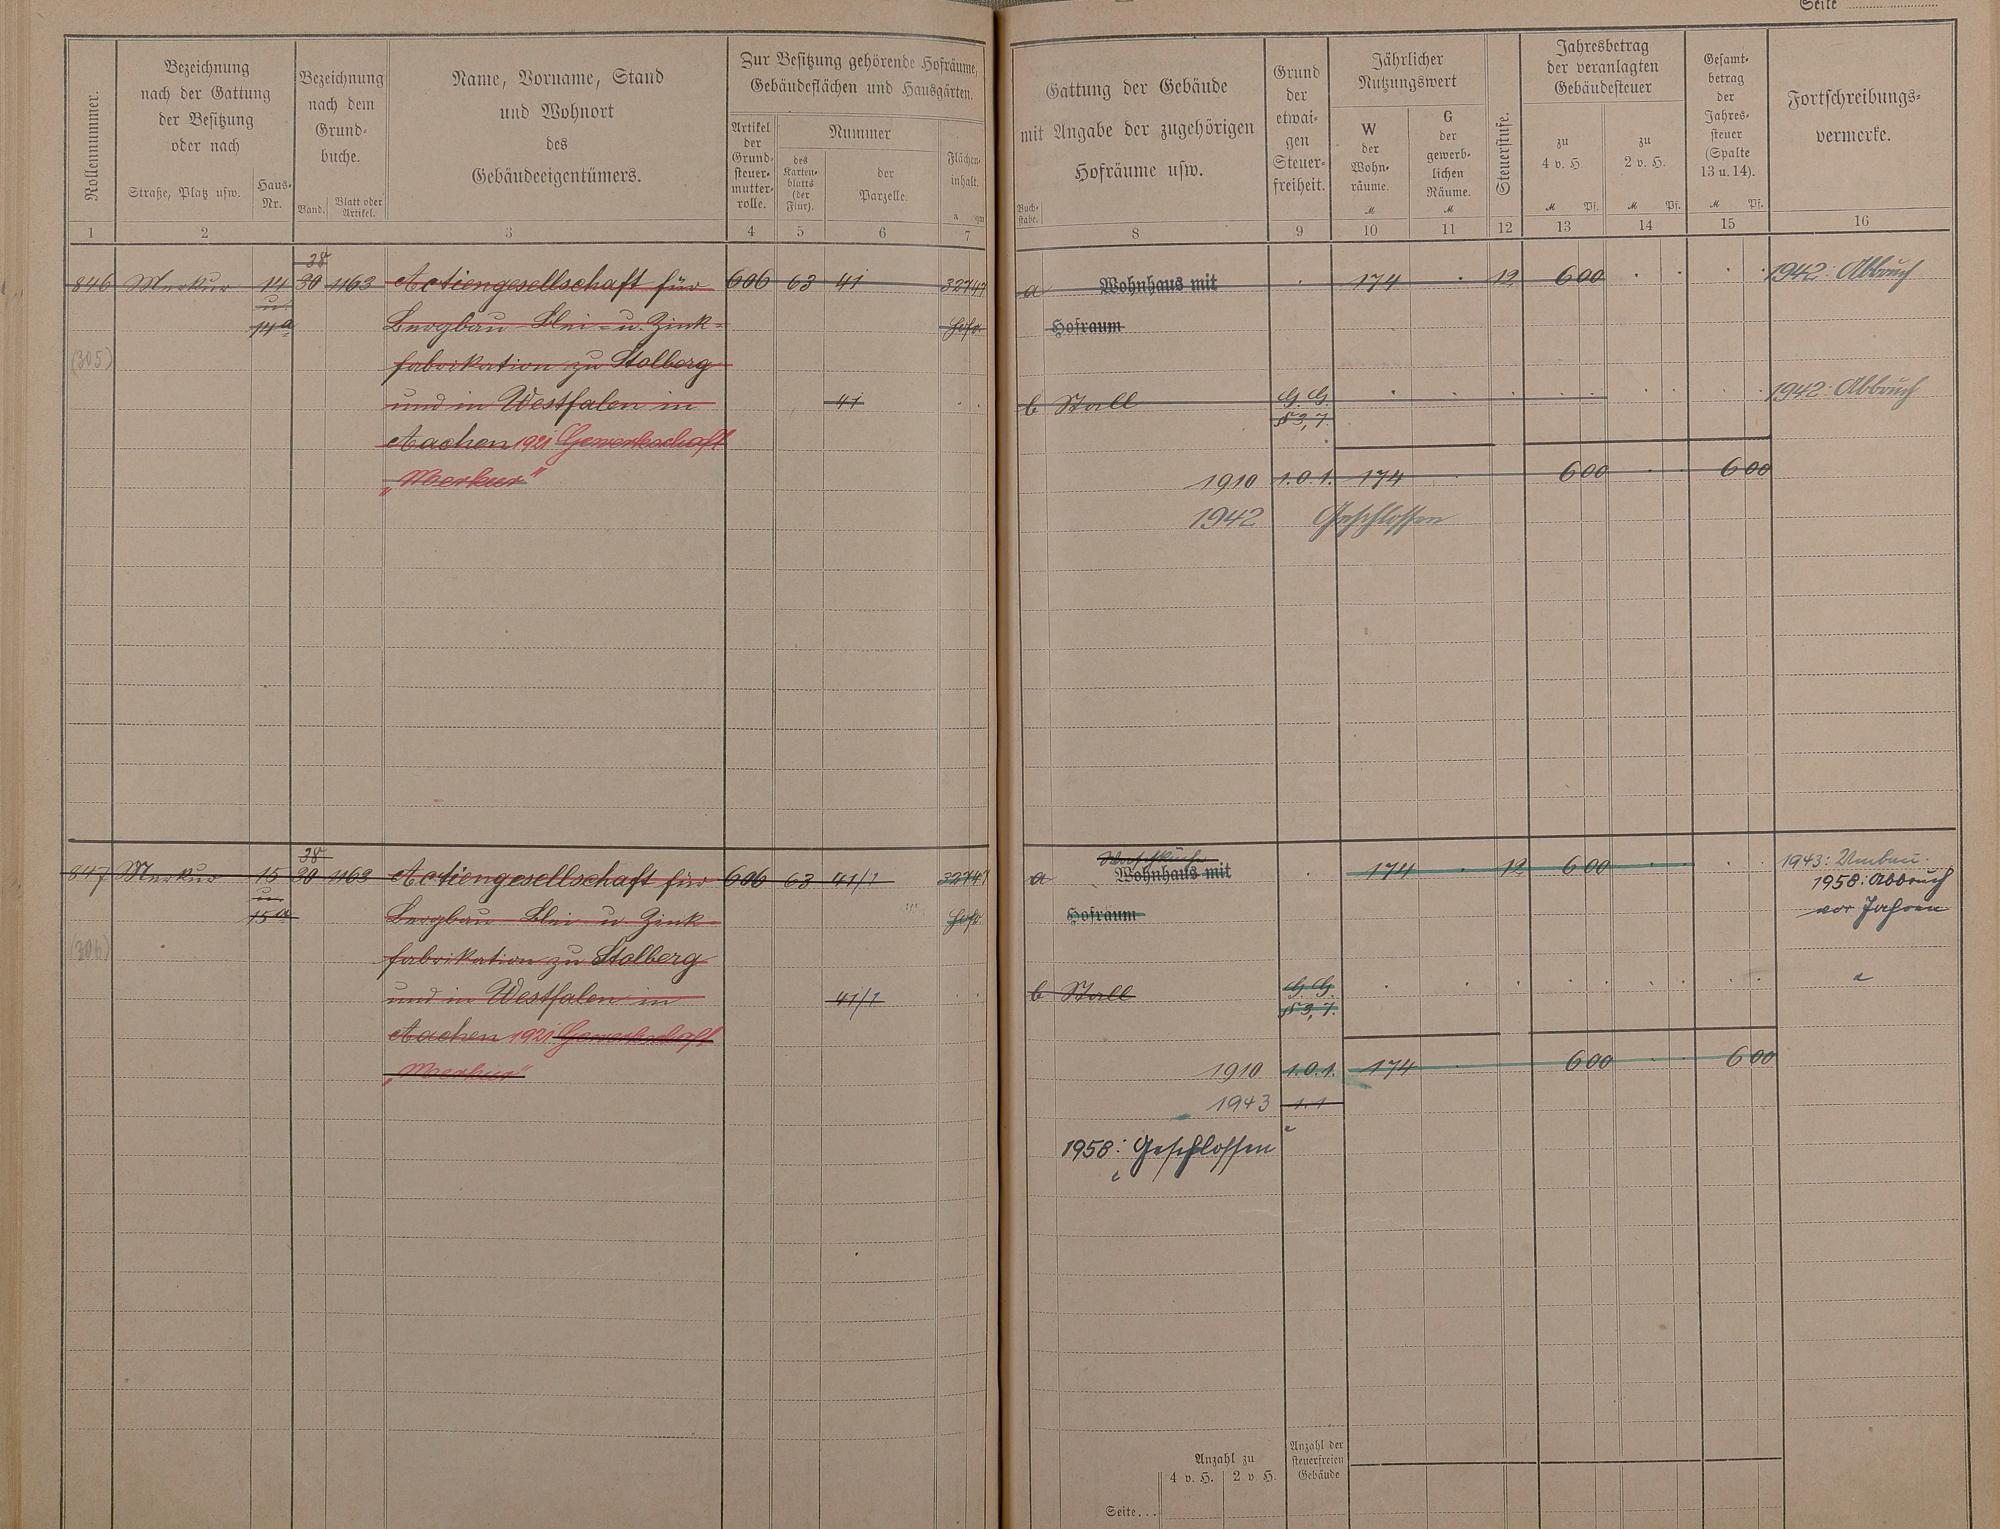 Seite
Rollennummer.
Bezeichnung
nach der Gattung
der Besitzung
oder nach
Straße, Platz usw.
Haus-
Nr.
Bezeichnung
nach dem
Grund-
buche.
Band.
Blatt oder
Artikel.
Name, Vorname, Stand
und Wohnort
des
Gebäudeeigentümers.
Zur Besitzung gehörende Hofräume,
Gebäudeflächen und Hausgärten.
Artikel
der
Grund-
steuer-
mutter-
rolle.
Nummer
des
Karten-
blatts
(der
Flur).
der
Parzelle.
Flächen-
inhalt.
a qm
1 2 3 4 5 6 7
Buch-
stabe.
Gattung der Gebäude
mit Angabe der zugehörigen
Hofräume usw.
Grund
der
etwai-
gen
Steuer-
freiheit.
Jährlicher
Nutzungswert
W
der
Wohn-
räume.
M
G
der
gewerb-
lichen
Räume.
M
Steuerstufe.
Jahresbetrag
der veranlagten
Gebäudesteuer
zu
4 v. H.
M Pf.
zu
2 v. H.
M Pf.
Gesamt-
betrag
der
Jahres-
steuer
(Spalte
13 u. 14).
M Pf.
Fortschreibungs-
vermerke.
8 9 10 11 12 13 14 15 16
38
846 Merkur 14 30 1163 Actiengesellschaft für 606 63 41 32747
u.
14a Bergbau Blei- u. Zink-
Hofr.
(305) fabrikation zu Stolberg
und in Westfalen in 41
Aachen 1921 Gewerkschaft
„Merkur"
a Wohnhaus mit 174 12 6 00 1942: Abbruch
Hofraum
b Stall G. G. 1942: Abbruch
§ 3, 7.
1910 1. 0. 1. 174 6 00 6 00
1942 Geschlossen
38
847 Merkur 15 30 1163 Actiengesellschaft für 606 63 41/1 32747
u.
15a Bergbau Blei- u. Zink-
Hofr.
(306) fabrikation zu Stolberg
und in Westfalen in 41/1
Aachen 1921 Gewerkschaft
„Merkur"
Waschküche
a Wohnhaus mit 174 12 6 00 1943: Umbau.
1958: Abbruch
Hofraum vor Jahren
b Stall G. G.
§ 3, 7.
1910 1. 0. 1. 174 6 00 6 00
1943 1. 1
1958: Geschlossen
Anzahl zu
4 v. H. 2 v H.
Anzahl der
steuerfreien
Gebäude
Seite...